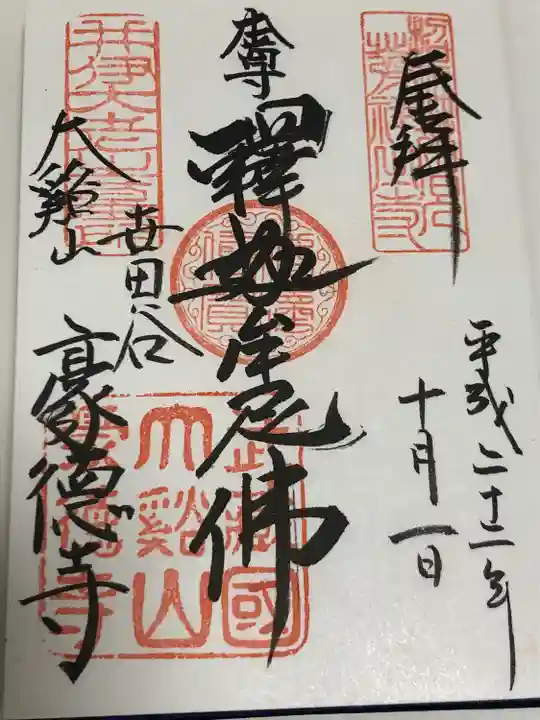 奉拝
平成二十二年
十月一日
本尊
釋迦牟尼佛
世田谷
大谿山
豪德寺
武蔵國
大谿山
豪徳寺